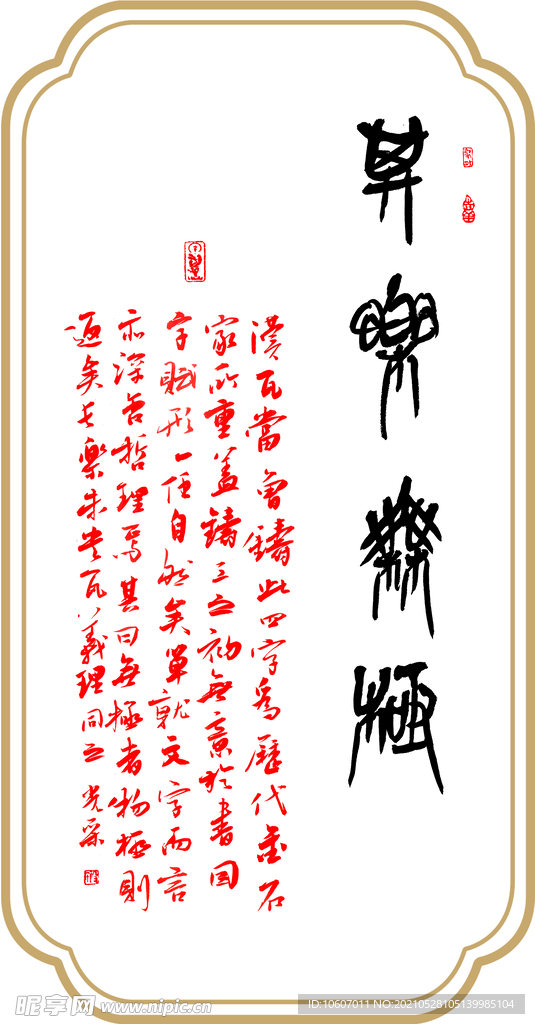 其樂無極
漢瓦當曾鑄此四字為歷代金石
家所重蓋鑄之之初無意於書因
字賦形一任自然矣單就文字而言
亦深含哲理焉其曰無極者物極則
返矣長樂未央瓦義理同之
昵享网 www.nipic.cn
ID:10607011 NO:20210528105139985104